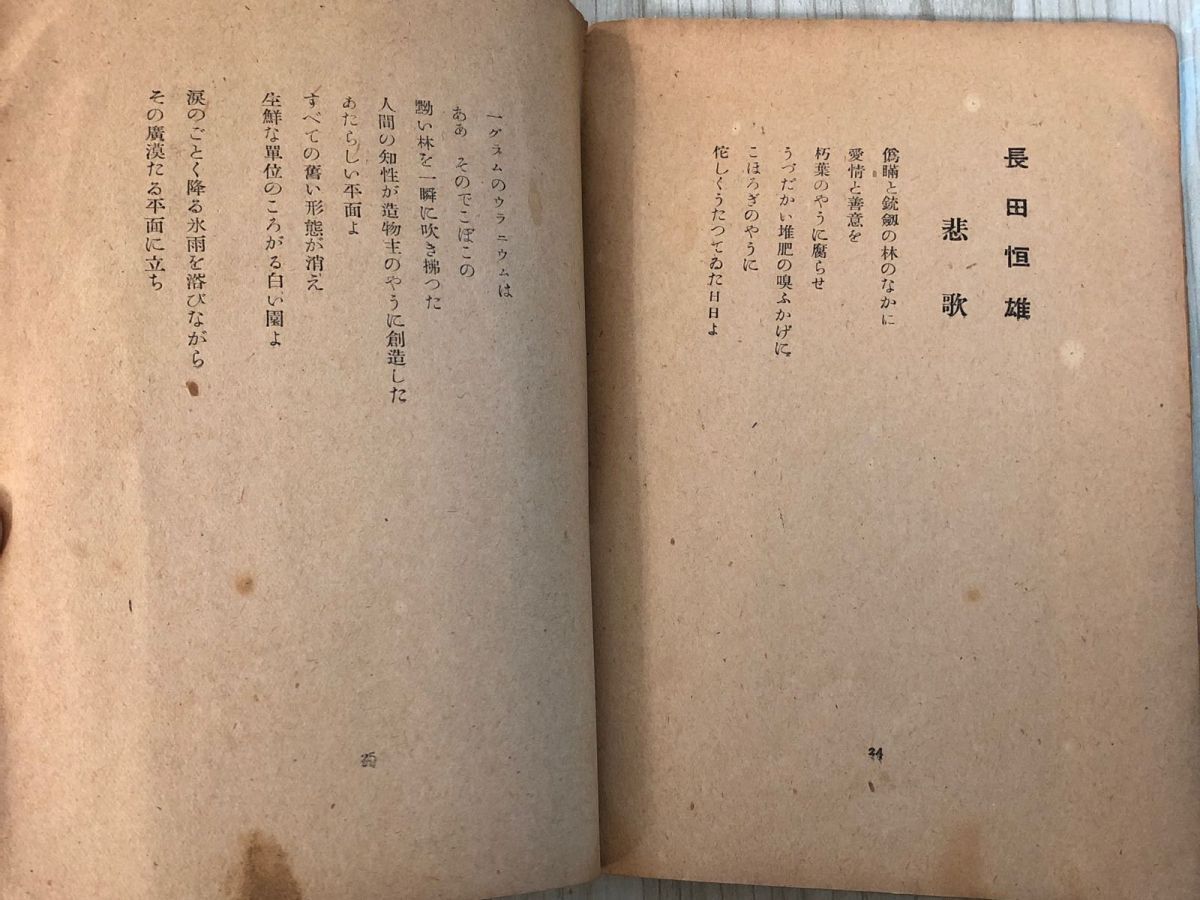 長田恒雄
悲歌
僞瞞と銃劔の林のなかに
愛情と善意を
朽葉のやうに腐らせ
うづだかい堆肥の嗅ふかげに
こほろぎのやうに
佗しくうたつてゐた日日よ
34
一グラムのウラニウムは
ああ そのでこぼこの
黝い林を一瞬に吹き拂つた
人間の知性が造物主のやうに創造した
あたらしい平面よ
すべての舊い形態が消え
生鮮な單位のころがる白い園よ
涙のごとく降る氷雨を浴びながら
その廣漠たる平面に立ち
35